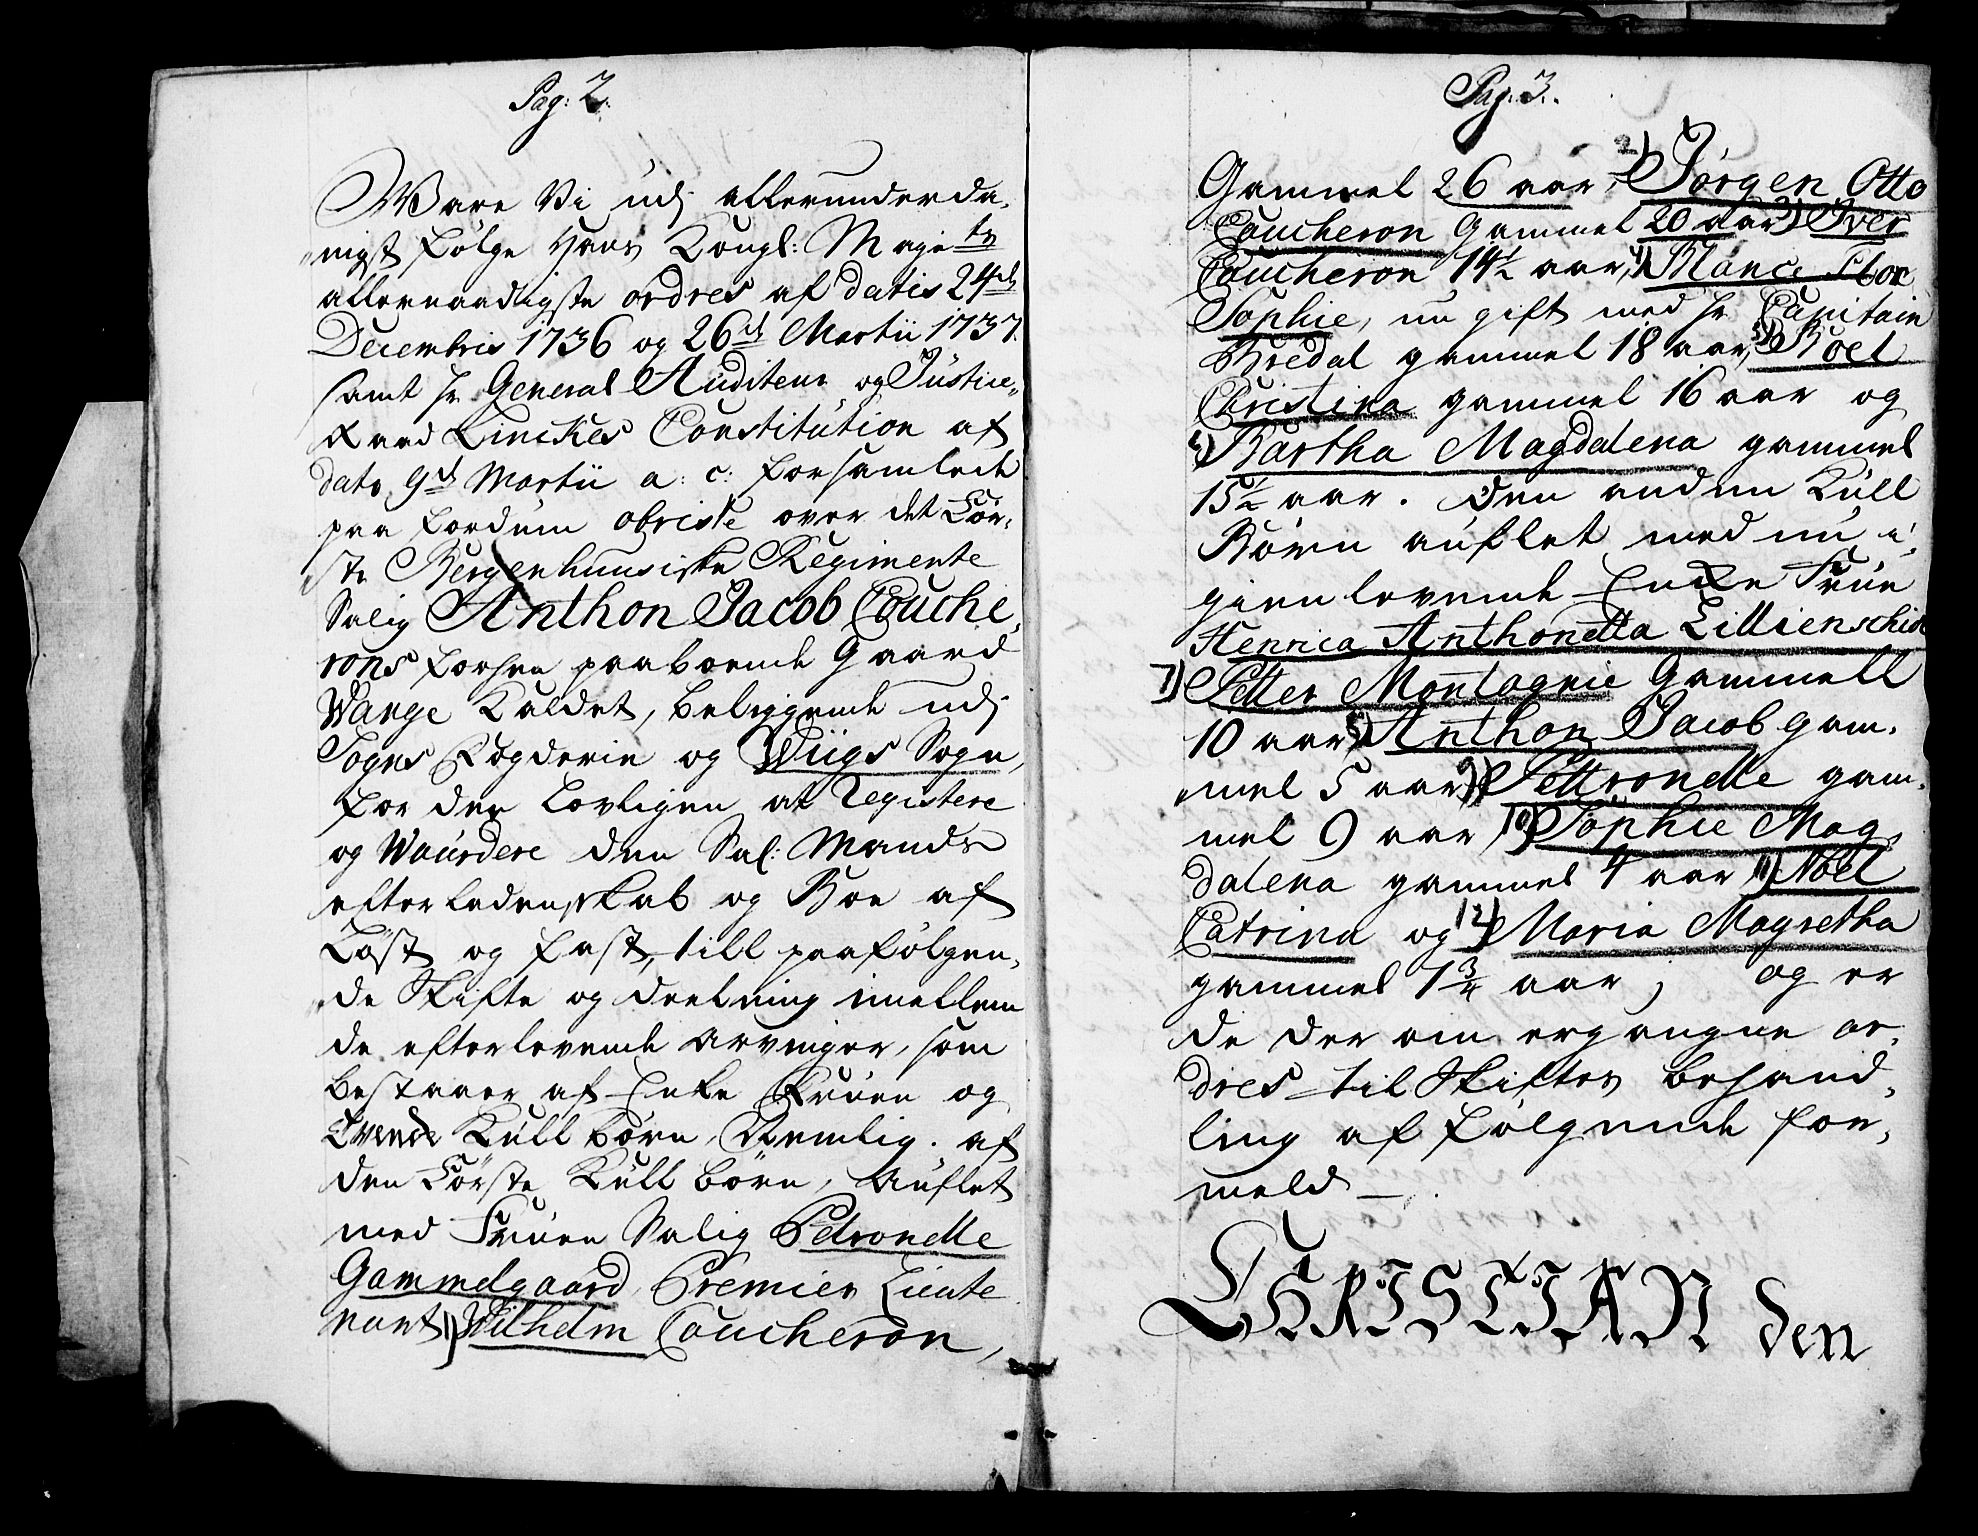 Pag: 2.
Ware Vi udj allerunderda,
nigst følge Hans Kongl: Majets
allernaadigste ordres af datis 24de
Decembris 1736 og 26de Martii 1737.
samt Hr General Auditeur og Justice,,
Raad Linckes Constitution af
dato 9de Martii a: c: forsamlede
paa fordum obriste over det För,
ste Bergenhuusiske Regimente
Salig Anthon Jacob Couche,
rons forhen paaboende Gaard
Wange Kaldet, beliggende udj
Sogns Fogderie og Wiigs Sogn,
for der Lovligen at Registere
og Waurdere den Sal: Mands
efterladenskab og Boe af
Løst og fast, till paafølgen,
de Skifte og deelning imellem
de efterlevende Arvinger, som
bestaaer af Enke Fruen og
Tvende Kull börn, Nemlig. af
den Förste Kull börn, Auflet
med Fruen Salig Petronelle
Gammelgaard, Premier Lieute
nant 1) Wilhelm Coucheron,
Pag: 3.
Gammel 26 aar, 2) Jörgen Otto
Coucheron Gammel 20 aar 3) Iver
Coucheron 14½ aar, 4) Blance
Sophie, nu gift med Hr Capitain
Bredal gammel 18 aar, 5) Boel
Christina gammel 16 aar og
6) Bartha Magdalena gammel
15½ aar. Den anden Kull
Börn auflet med nu i,
gien levende Encke Frue
Henrica Anthonetta Lillienschiold
7) Petter Montagnie Gammell
10 aar 8) Anthon Jacob gam,
mel 5 aar 9) Pettronelle gam,
mel 9 aar, 10) Sophie Mag,
dalena gammel 4 aar 11) Nöel
Catrina og 12) Maria Magretha
gammel 1¾ aar; og er
de der om ergangne or,
dres til Skiftes behand,
ling af følgende for,
meld
CHRISTIAN den